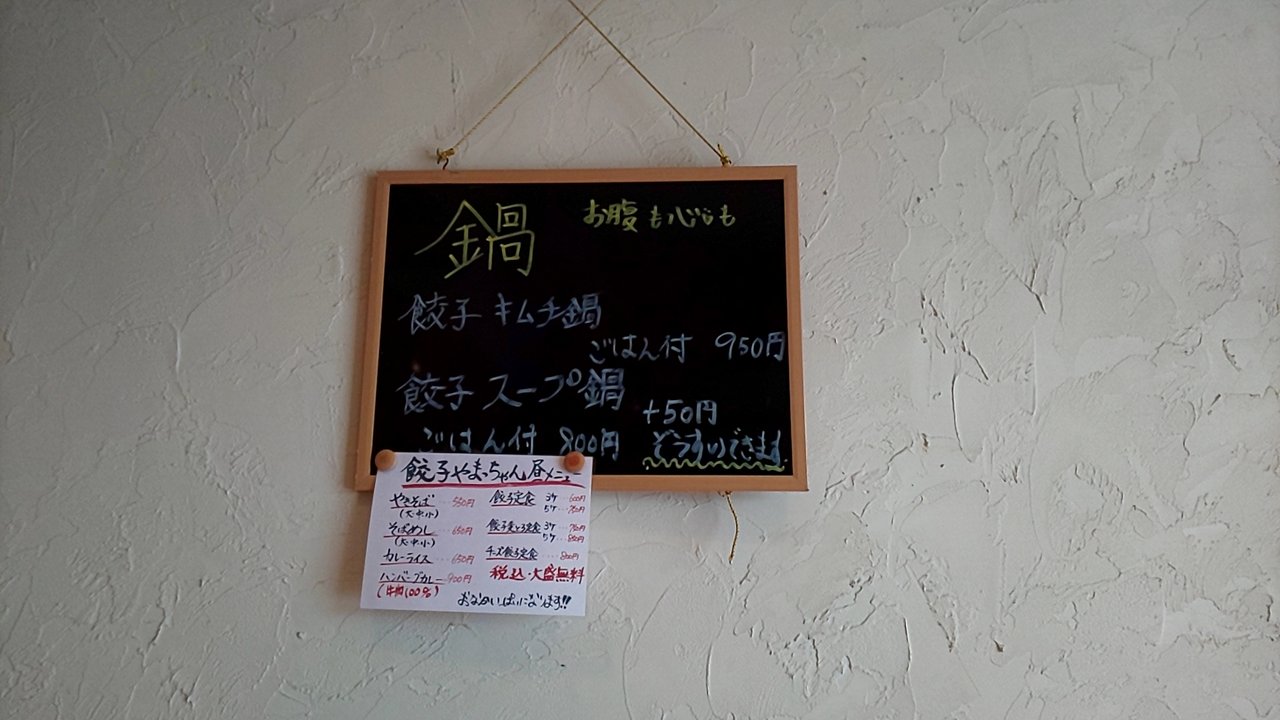 鍋 お腹も心も
餃子 キムチ鍋
ごはん付 950円
餃子 スープ鍋
+50円
ごはん付 800円 ぞうすいできます
餃子やまちゃん昼メニュー
やきそば 550円
(大・中・小)
そばめし 650円
(大・中・小)
カレーライス 650円
ハンバーグカレー 900円
(牛肉100%)
餃子定食 3ケ 600円
5ケ 750円
3ケ 750円
5ケ 850円
チーズ餃子定食 800円
税込・大盛無料
おなかいっぱいになります!!